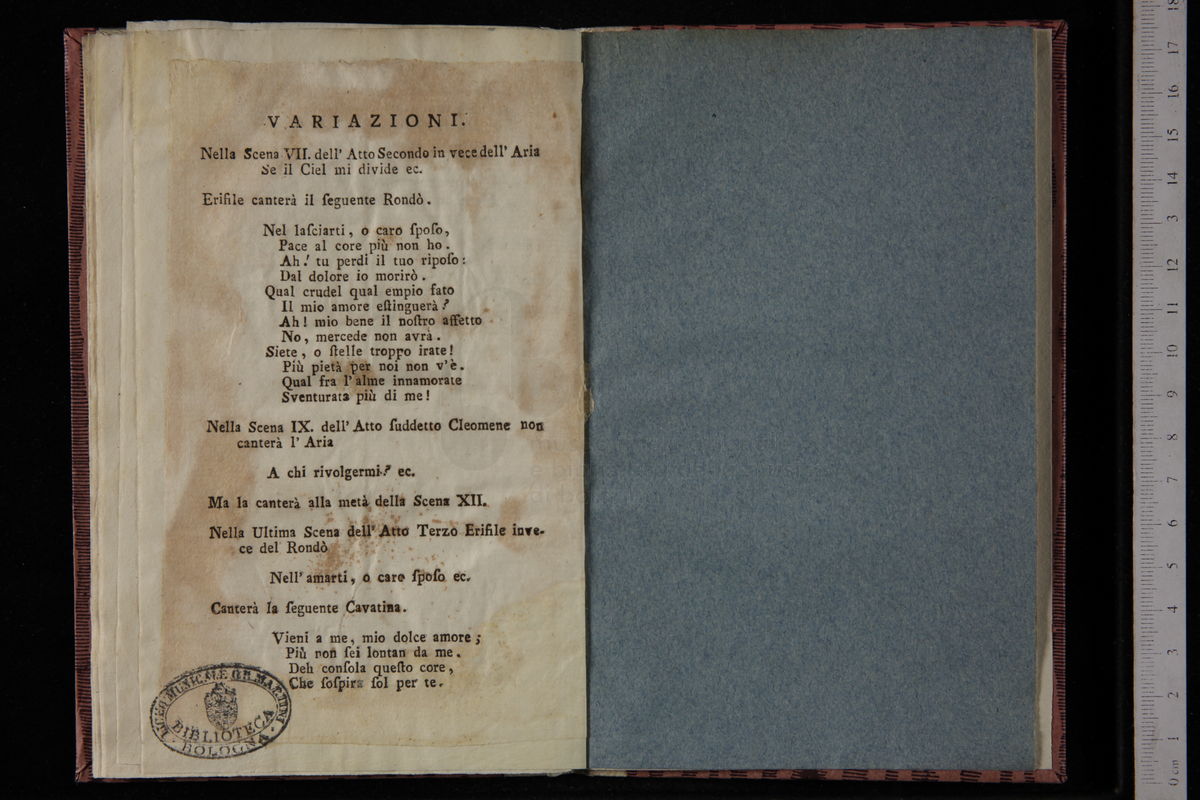 VARIAZIONI.
Nella Scena VII. dell' Atto Secondo in vece dell' Aria
Se il Ciel mi divide ec.
Erifile canterà il ſeguente Rondò.
Nel laſciarti, o caro ſpoſo,
Pace al core più non ho.
Ah! tu perdi il tuo ripoſo:
Dal dolore io morirò.
Qual crudel qual empio fato
Il mio amore eſtinguerà?
Ah! mio bene il noſtro affetto
No, mercede non avrà.
Siete, o ſtelle troppo irate!
Più pietà per noi non v'è.
Qual fra l'alme innamorate
Sventurata più di me!
Nella Scena IX. dell' Atto ſuddetto Cleomene non
canterà l' Aria
A chi rivolgermi? ec.
Ma la canterà alla metà della Scena XII.
Nella Ultima Scena dell' Atto Terzo Erifile inve-
ce del Rondò
Nell' amarti, o caro ſpoſo ec.
Canterà la ſeguente Cavatina.
Vieni a me, mio dolce amore;
Più non ſei lontan da me.
Deh conſola queſto core,
Che ſoſpira ſol per te.
LICEO MUSICALE G.B. MARTINI
BIBLIOTECA
BOLOGNA
0 cm 1 2 3 4 5 6 7 8 9 10 11 12 3 14 15 16 17 18